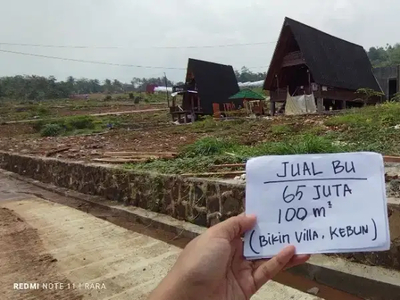 JUAL BU
65 JUTA
100 m³
(Bikin Villa, KEBUN)
REDMI NOTE 11 | RARA